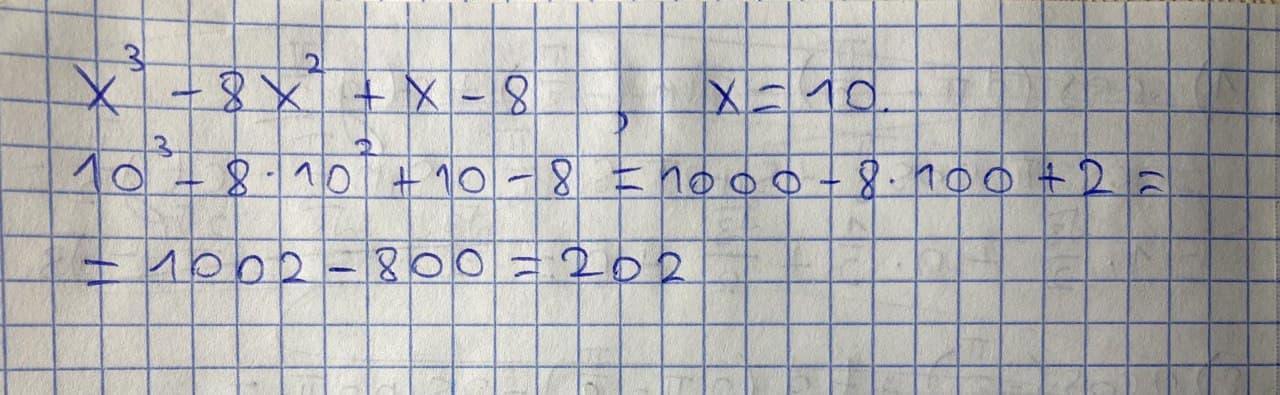 x³ - 8x² + x - 8 , x = 10.
10³ - 8 · 10² + 10 - 8 = 1000 - 8 · 100 + 2 =
= 1002 - 800 = 202